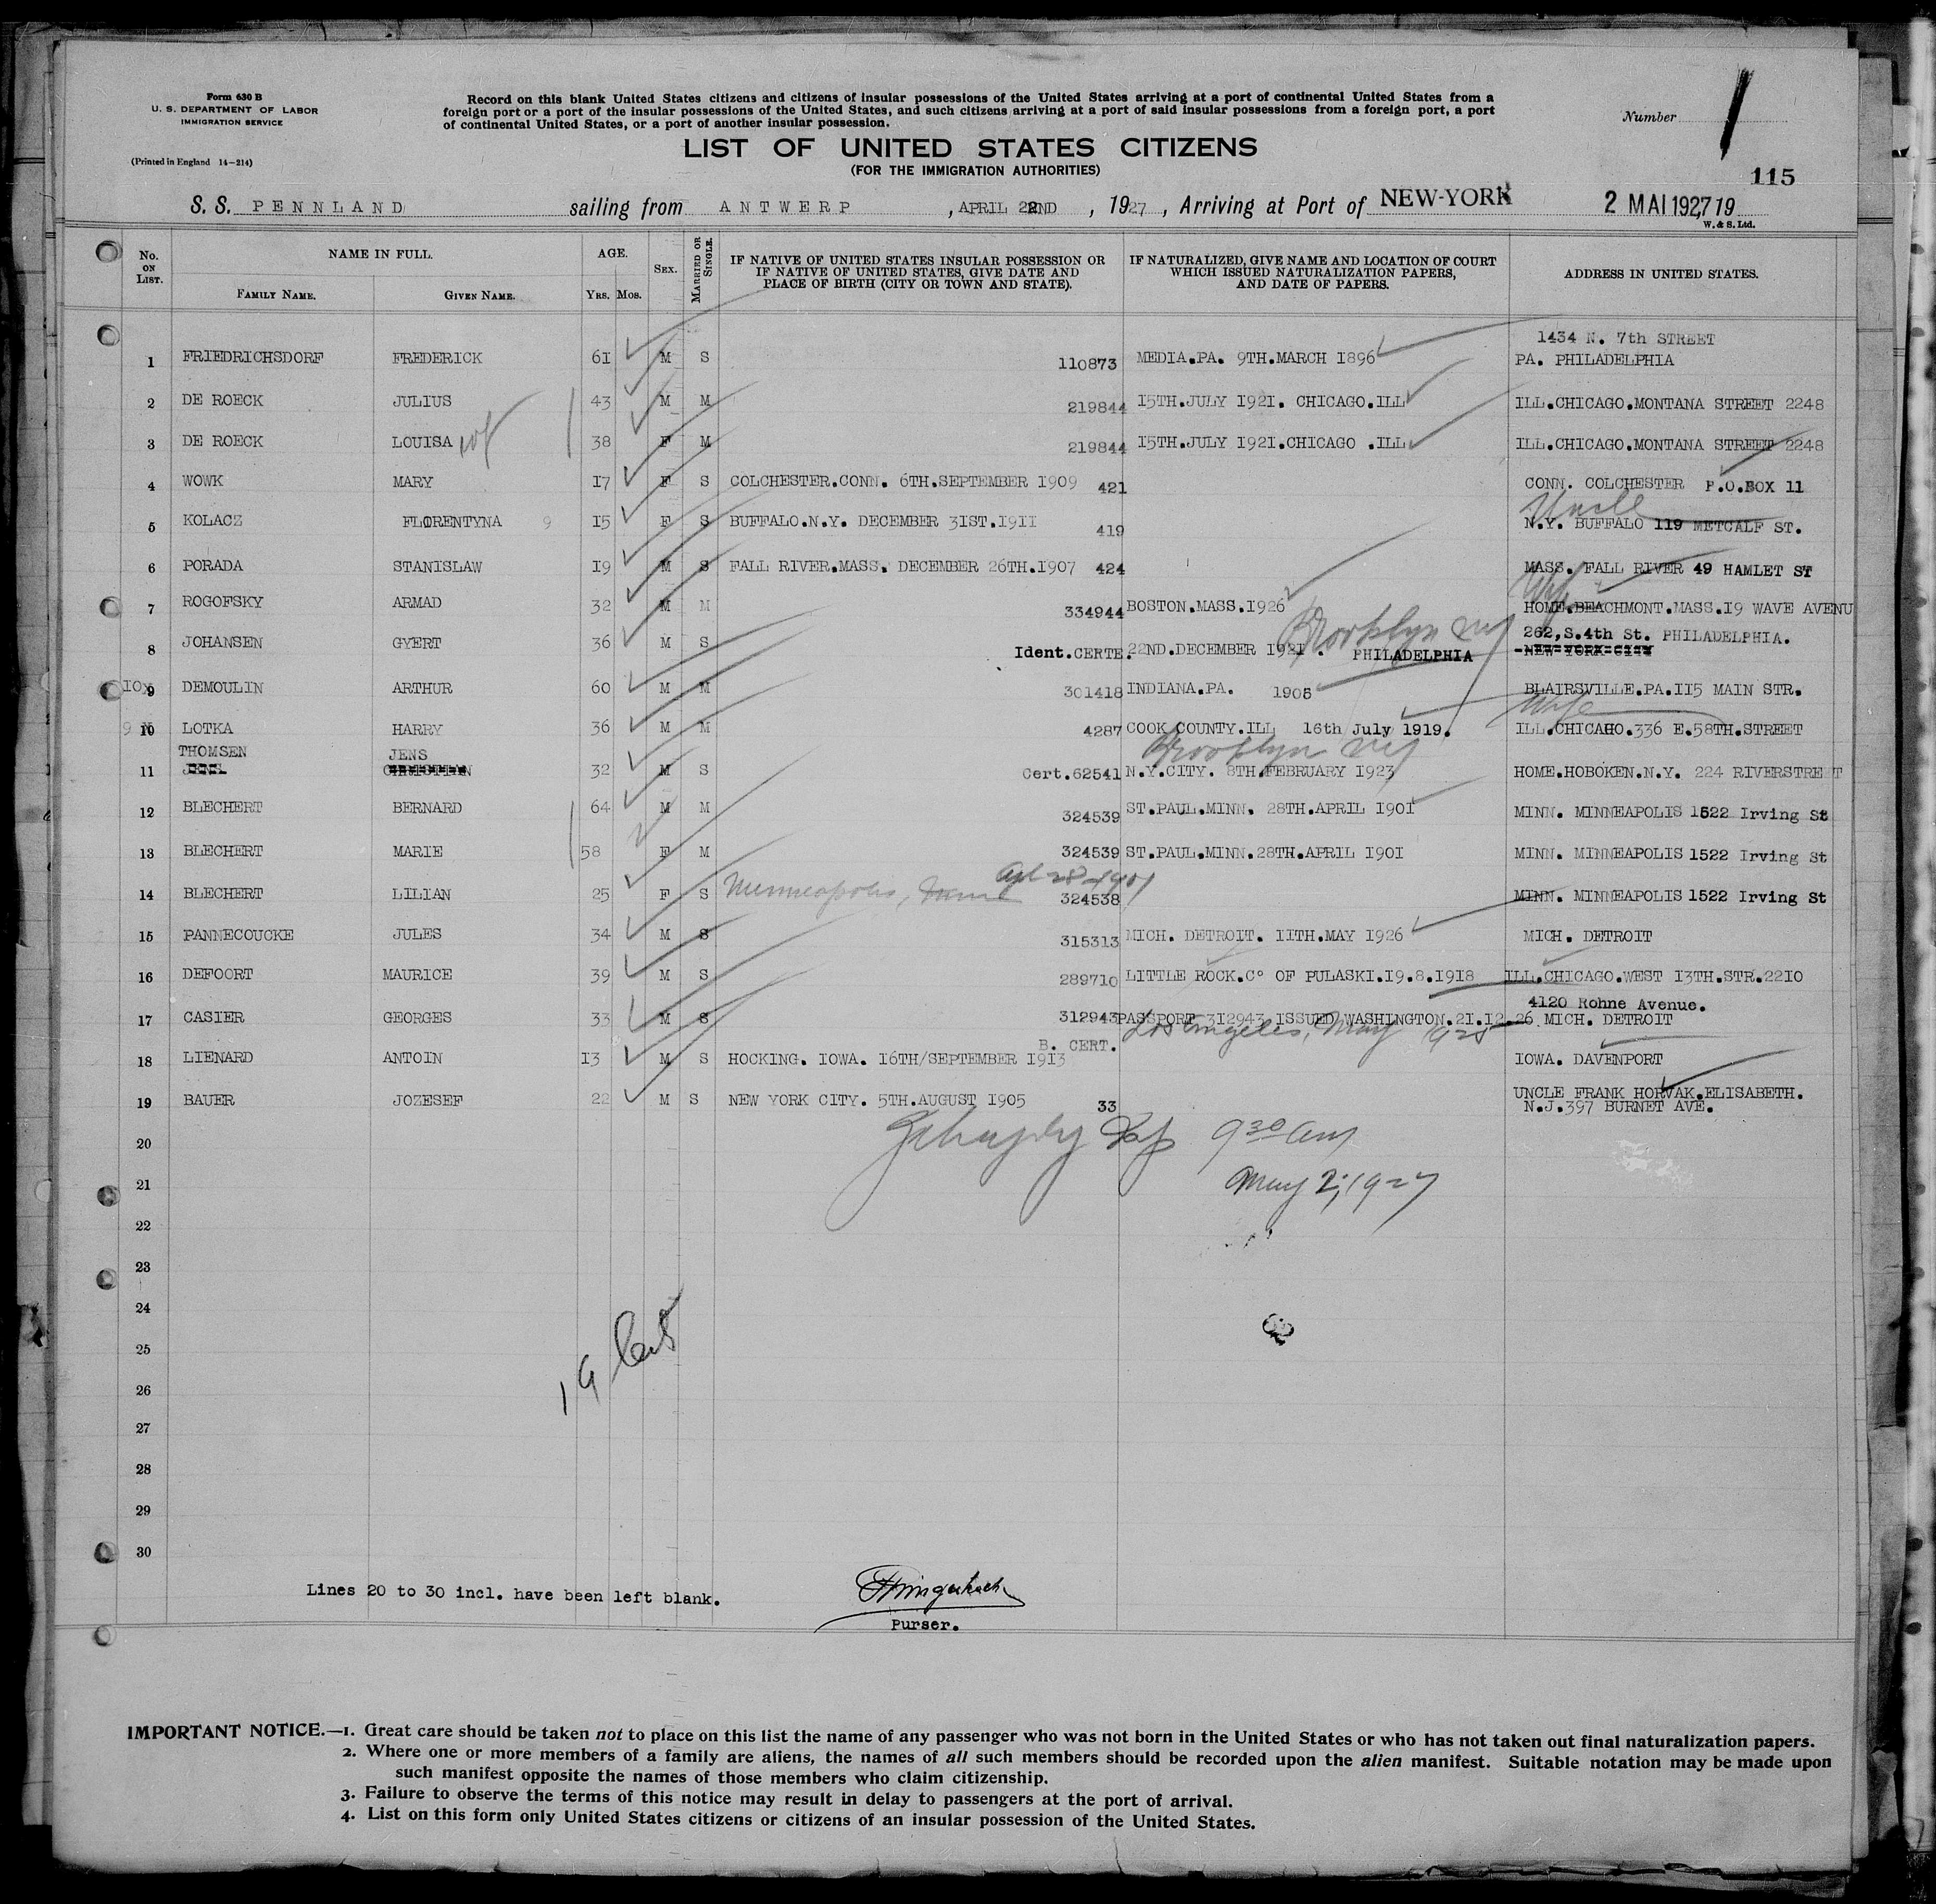 Form 630 B
U. S. DEPARTMENT OF LABOR
IMMIGRATION SERVICE
(Printed in England 14—214)
Record on this blank United States citizens and citizens of insular possessions of the United States arriving at a port of continental United States from a
foreign port or a port of the insular possessions of the United States, and such citizens arriving at a port of said insular possessions from a foreign port, a port
of continental United States, or a port of another insular possession.
Number 1
LIST OF UNITED STATES CITIZENS
(FOR THE IMMIGRATION AUTHORITIES)
115
S. S. PENNLAND sailing from ANTWERP , APRIL 22ND , 1927 , Arriving at Port of NEW-YORK 2 MAI 1927 19
W. & S. Ltd.
No. ON LIST. NAME IN FULL. AGE. SEX. MARRIED OR SINGLE. IF NATIVE OF UNITED STATES INSULAR POSSESSION OR IF NATIVE OF UNITED STATES, GIVE DATE AND PLACE OF BIRTH (CITY OR TOWN AND STATE). IF NATURALIZED, GIVE NAME AND LOCATION OF COURT WHICH ISSUED NATURALIZATION PAPERS, AND DATE OF PAPERS. ADDRESS IN UNITED STATES.
FAMILY NAME. GIVEN NAME. YRS. MOS.
1434 N. 7th STREET
1 FRIEDRICHSDORF FREDERICK 61 M S 110873 MEDIA.PA. 9TH.MARCH 1896 PA. PHILADELPHIA
2 DE ROECK JULIUS 43 M M 219844 15TH.JULY 1921. CHICAGO.ILL ILL.CHICAGO.MONTANA STREET 2248
3 DE ROECK LOUISA wf 38 F M 219844 15TH.JULY 1921.CHICAGO .ILL ILL.CHICAGO.MONTANA STREET 2248
4 WOWK MARY 17 F S COLCHESTER.CONN. 6TH.SEPTEMBER 1909 421 CONN. COLCHESTER P.O.BOX 11
Uncle
5 KOLACZ FLORENTYNA 9 15 F S BUFFALO.N.Y. DECEMBER 31ST.1911 419 N.Y. BUFFALO 119 METCALF ST.
6 PORADA STANISLAW 19 M S FALL RIVER.MASS. DECEMBER 26TH.1907 424 MASS. FALL RIVER 49 HAMLET ST
Wife
7 ROGOFSKY ARMAD 32 M M 334944 BOSTON.MASS.1926 HOME.BEACHMONT.MASS.19 WAVE AVENU
Brooklyn NY
262,S.4th St. PHILADELPHIA.
8 JOHANSEN GYERT 36 M S Ident.CERTE. 22ND.DECEMBER 1921. PHILADELPHIA NEW-YORK-CITY
10x 9 DEMOULIN ARTHUR 60 M M 301418 INDIANA.PA. 1905 BLAIRSVILLE.PA.115 MAIN STR.
Wife
9 x 10 LOTKA HARRY 36 M M 4287 COOK COUNTY.ILL 16th July 1919. ILL.CHICAGO.336 E.58TH.STREET
THOMSEN JENS Brooklyn NY
11 JENS. CHRISTIAN 32 M S Cert.62541 N.Y.CITY. 8TH.FEBRUARY 1923 HOME.HOBOKEN.N.Y. 224 RIVERSTREET
12 BLECHERT BERNARD 64 M M 324539 ST.PAUL.MINN. 28TH.APRIL 1901 MINN. MINNEAPOLIS 1522 Irving St
13 BLECHERT MARIE 58 F M 324539 ST.PAUL.MINN.28TH.APRIL 1901 MINN. MINNEAPOLIS 1522 Irving St
14 BLECHERT LILIAN 25 F S Minneapolis, Minn Apl 28-1901 324538 MINN. MINNEAPOLIS 1522 Irving St
15 PANNECOUCKE JULES 34 M S 315313 MICH. DETROIT. 11TH.MAY 1926 MICH. DETROIT
16 DEFOORT MAURICE 39 M S 289710 LITTLE ROCK.C° OF PULASKI.19.8.1918 ILL.CHICAGO.WEST 13TH.STR.2210
4120 Rohne Avenue.
17 CASIER GEORGES 33 M S 312943 PASSPORT 312943 ISSUED WASHINGTON.21.12.26 MICH. DETROIT
Los Angeles, May 1925
B. CERT.
18 LIENARD ANTOIN 13 M S HOCKING. IOWA. 16TH/SEPTEMBER 1913 IOWA. DAVENPORT
UNCLE FRANK HORVAK.ELISABETH.
19 BAUER JOZESEF 22 M S NEW YORK CITY. 5TH.AUGUST 1905 33 N.J.397 BURNET AVE.
20 9 30 am
21 May 2, 1927
22
23
24
25
19 Cit
26
27
28
29
30
Lines 20 to 30 incl. have been left blank.
Purser.
IMPORTANT NOTICE.—1. Great care should be taken not to place on this list the name of any passenger who was not born in the United States or who has not taken out final naturalization papers.
2. Where one or more members of a family are aliens, the names of all such members should be recorded upon the alien manifest. Suitable notation may be made upon
such manifest opposite the names of those members who claim citizenship.
3. Failure to observe the terms of this notice may result in delay to passengers at the port of arrival.
4. List on this form only United States citizens or citizens of an insular possession of the United States.